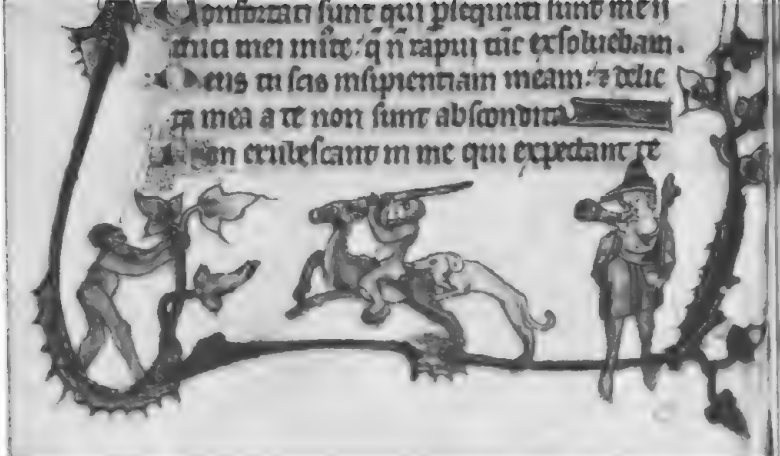 Confortati sunt qui ꝑsequuti sunt me ii
mici mei iniuste: q̄ nō rapui tūc exsoluebam.
Deus tu scis insipientiam meam: ⁊ delic
ta mea a te non sunt abscondita
Non erubescant in me qui expectant te